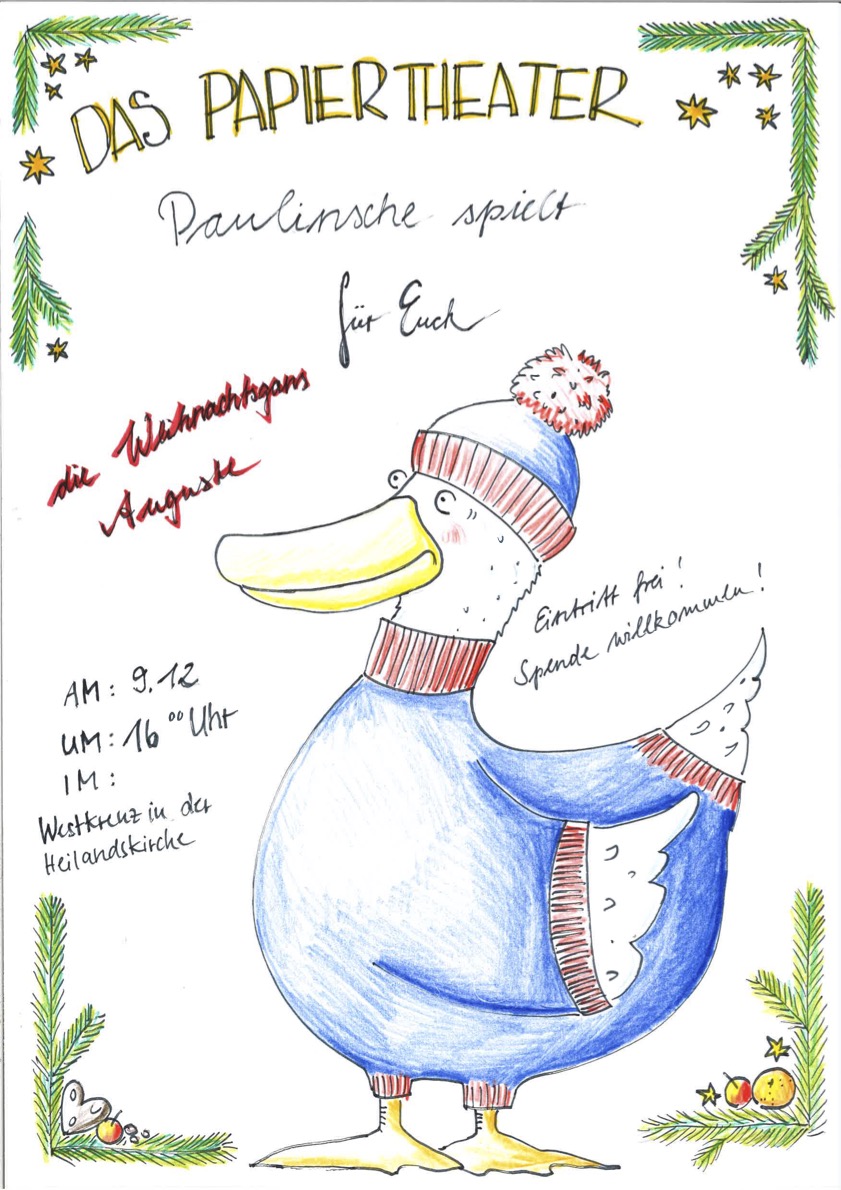 DAS PAPIERTHEATER
Paulinsche spielt
für Euch
die Weihnachtsgans
Auguste
Eintritt frei!
Spende willkommen!
AM: 9.12
UM: 16⁰⁰ Uhr
IM:
Westkreuz in der
Heilandskirche